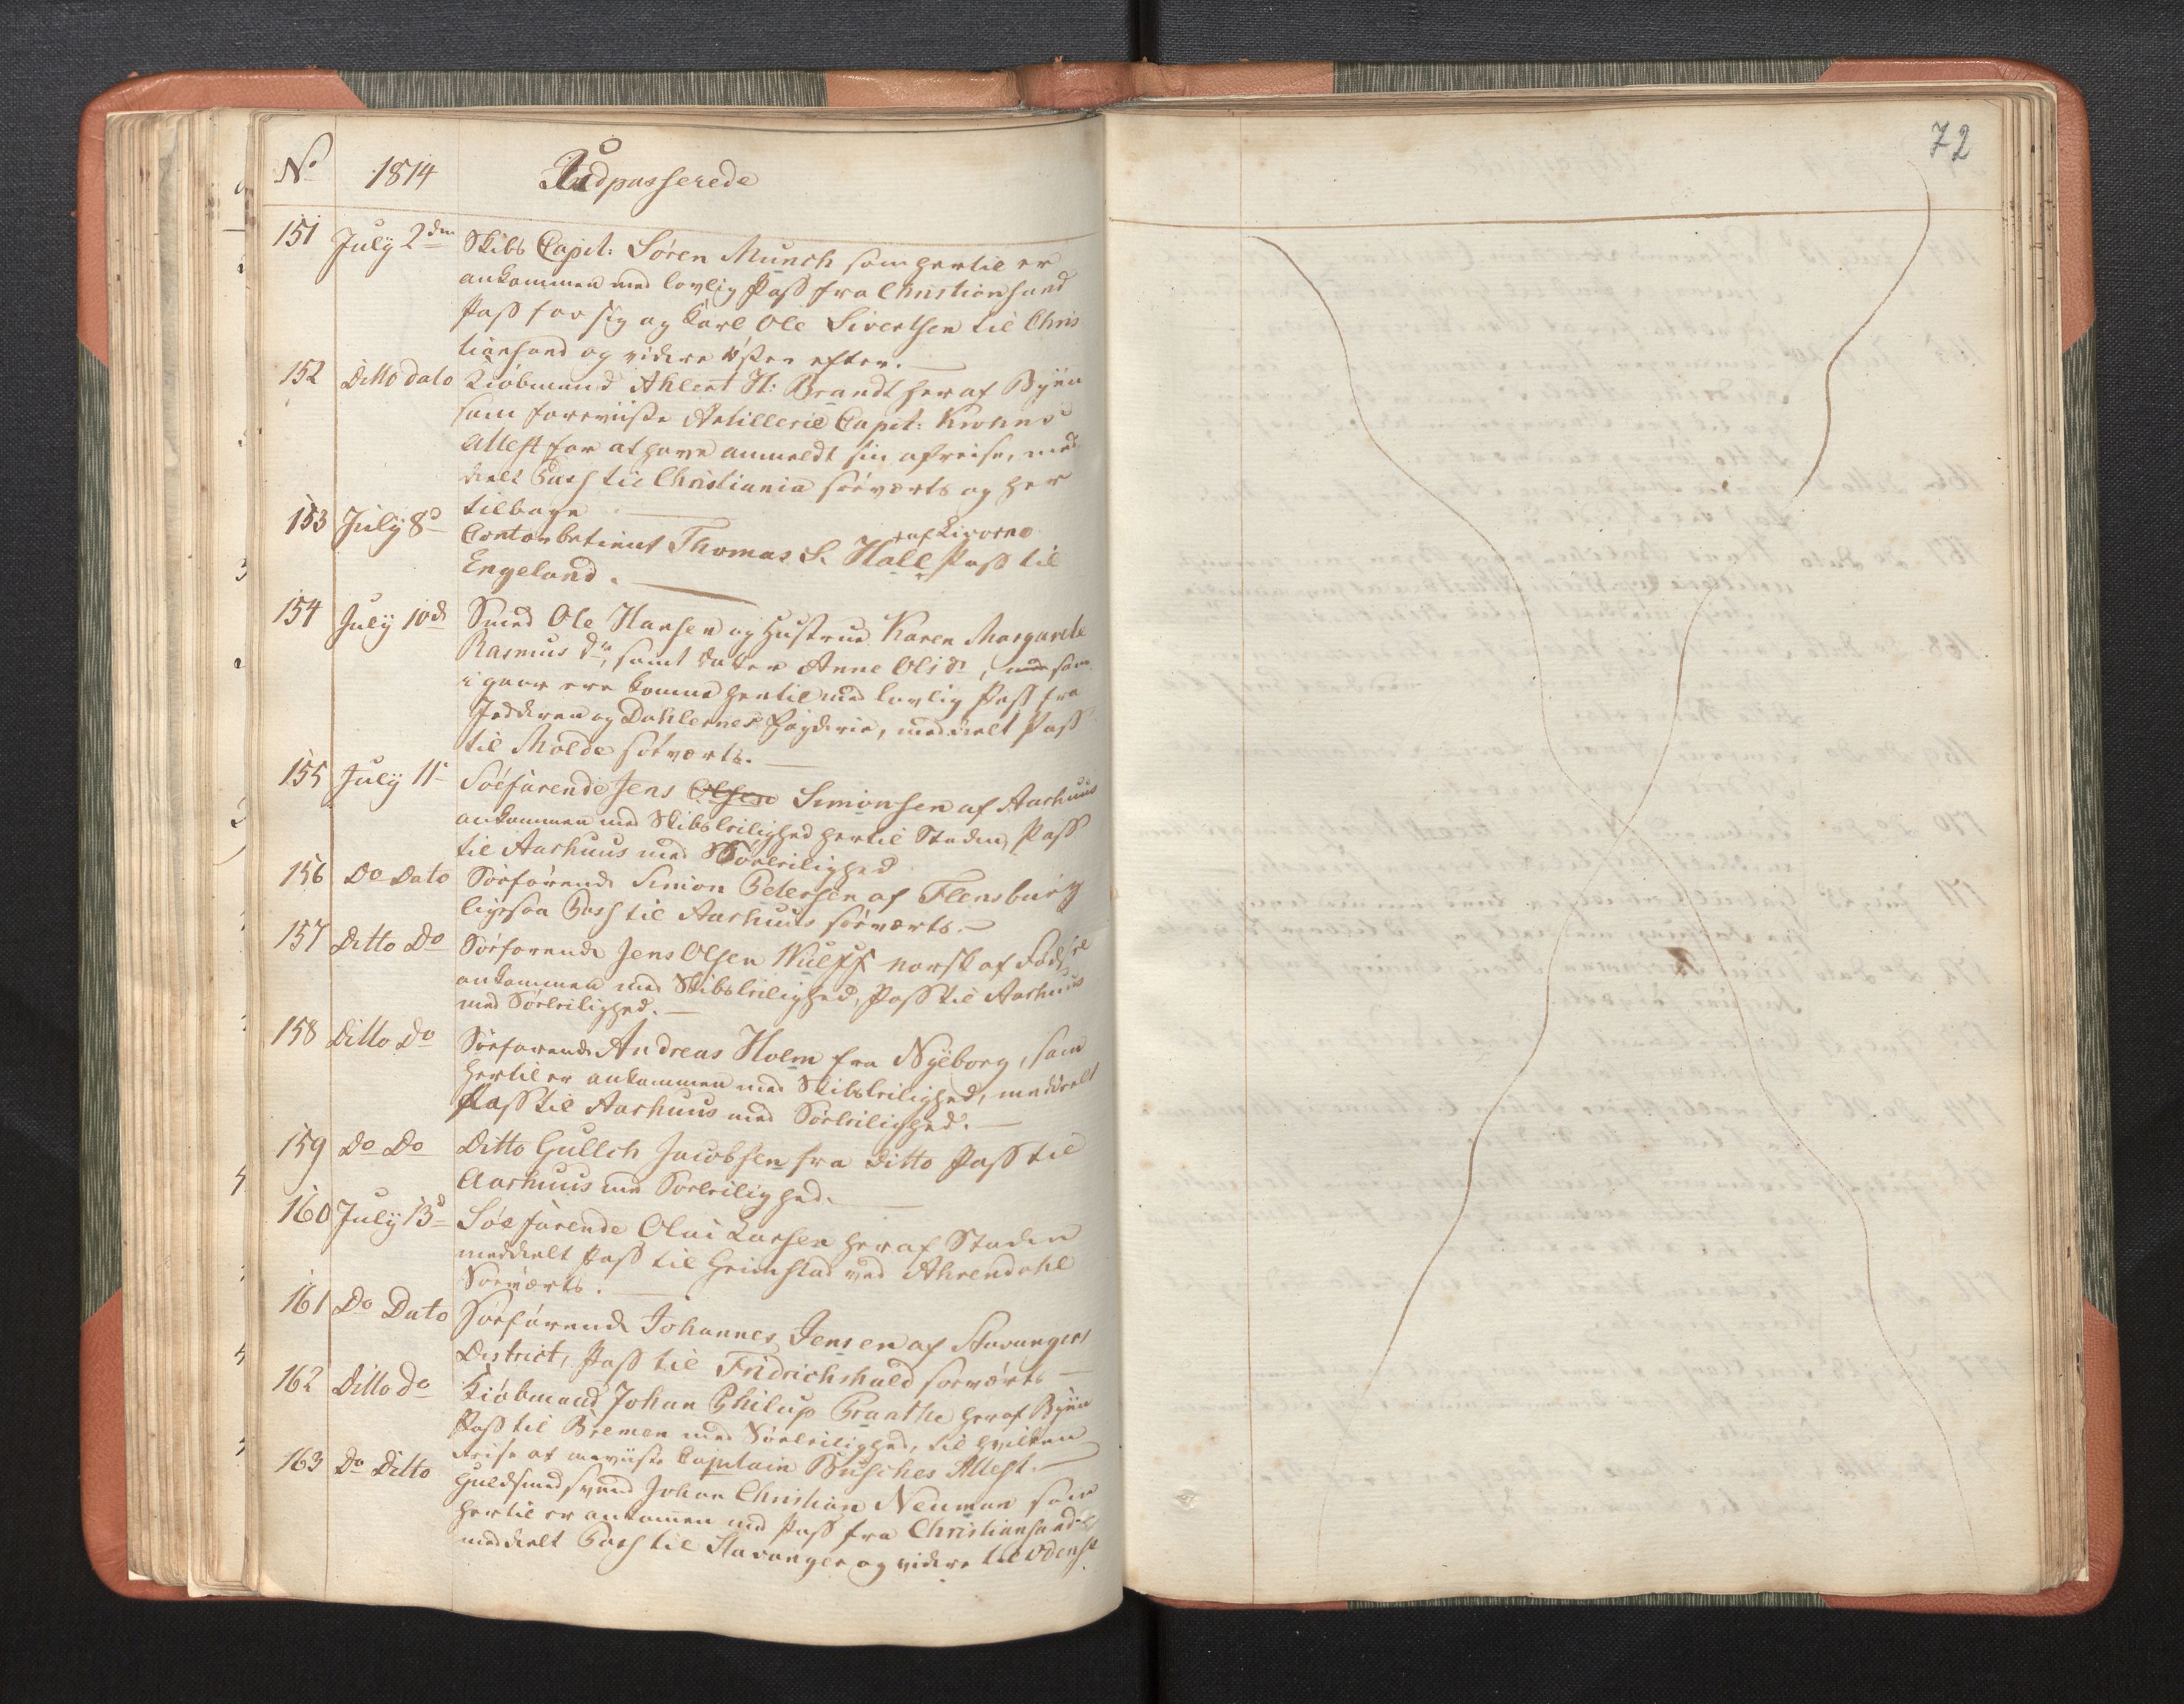 72
No 1814 Udpasserede
151 July 2den Skibs Capit: Sören Munch som hertil er
ankommen med lovlig Pass fra Christiansand
Pass for sig og Karl Ole Sivertsen til Chris
tiansand og videre öster efter. —
152 Ditto dato Kiöbmand Ahlert H: Brandt her af Byen
som foreviiste Artillerie Capit: Krohns
Attest for at have anmeldt sin afreise, med
deelt Pass til Christiania söeværts og her
tilbage —
153 July 8d Contorbetient Thomas S. Hall af Livorno Pass til
Engeland. —
154 July 10d Smed Ole Hansen og Hustrue Karen Margarete
Rasmusdr, samt datter Anne Olsdr, som
i gaar ere komne hertil med lovlig Pass fra
Jedderen og Dahlernes Fogderie, meddeelt Pass
til Molde söeværts. —
155 July 11 Söefarende Jens Olsen Simonsen af Aarhuus
ankommen med Skibsleilighed her til Staden, Pass
til Aarhuus med Söeleilighed
156 Do Dato Söefarende Simon Petersen af Flensburg
ligesaa Pass til Aarhuus söeværts. —
157 Ditto Do Söefarende Jens Olsen Wulff norsk af Födsel
ankommen med Skibsleilighed, Pass til Aarhuus
med Söeleilighed. —
158 Ditto Do Söefarende Andreas Holm fra Nyeborg, som
hertil er ankommen med Skibsleilighed, meddeelt
Pass til Aarhuus med Söeleilighed. —
159 Do Do Ditto Gullch Jacobsen fra Ditto Pass til
Aarhuus med Söeleilighed. —
160 July 13d Söefarende Olai Larsen her af Staden
meddeelt Pass til Grimstad ved Ahrendahl
Söeværts. —
161 Do Dato Söefarende Johannes Jensen af Stavangers
District, Pass til Fridrichshald söeværts —
162 Ditto do Kiöbmand Johan Philip Granthe her af Byen
Pass til Bremen med Söeleilighed, til hvilken
Reise at Capitain Busches Attest. —
163 Do Ditto Guldsmedsvend Johan Christian Neuman som
hertil er ankommen med Pass fra Christiansand
meddeelt Pass til Stavanger og videre til Odense